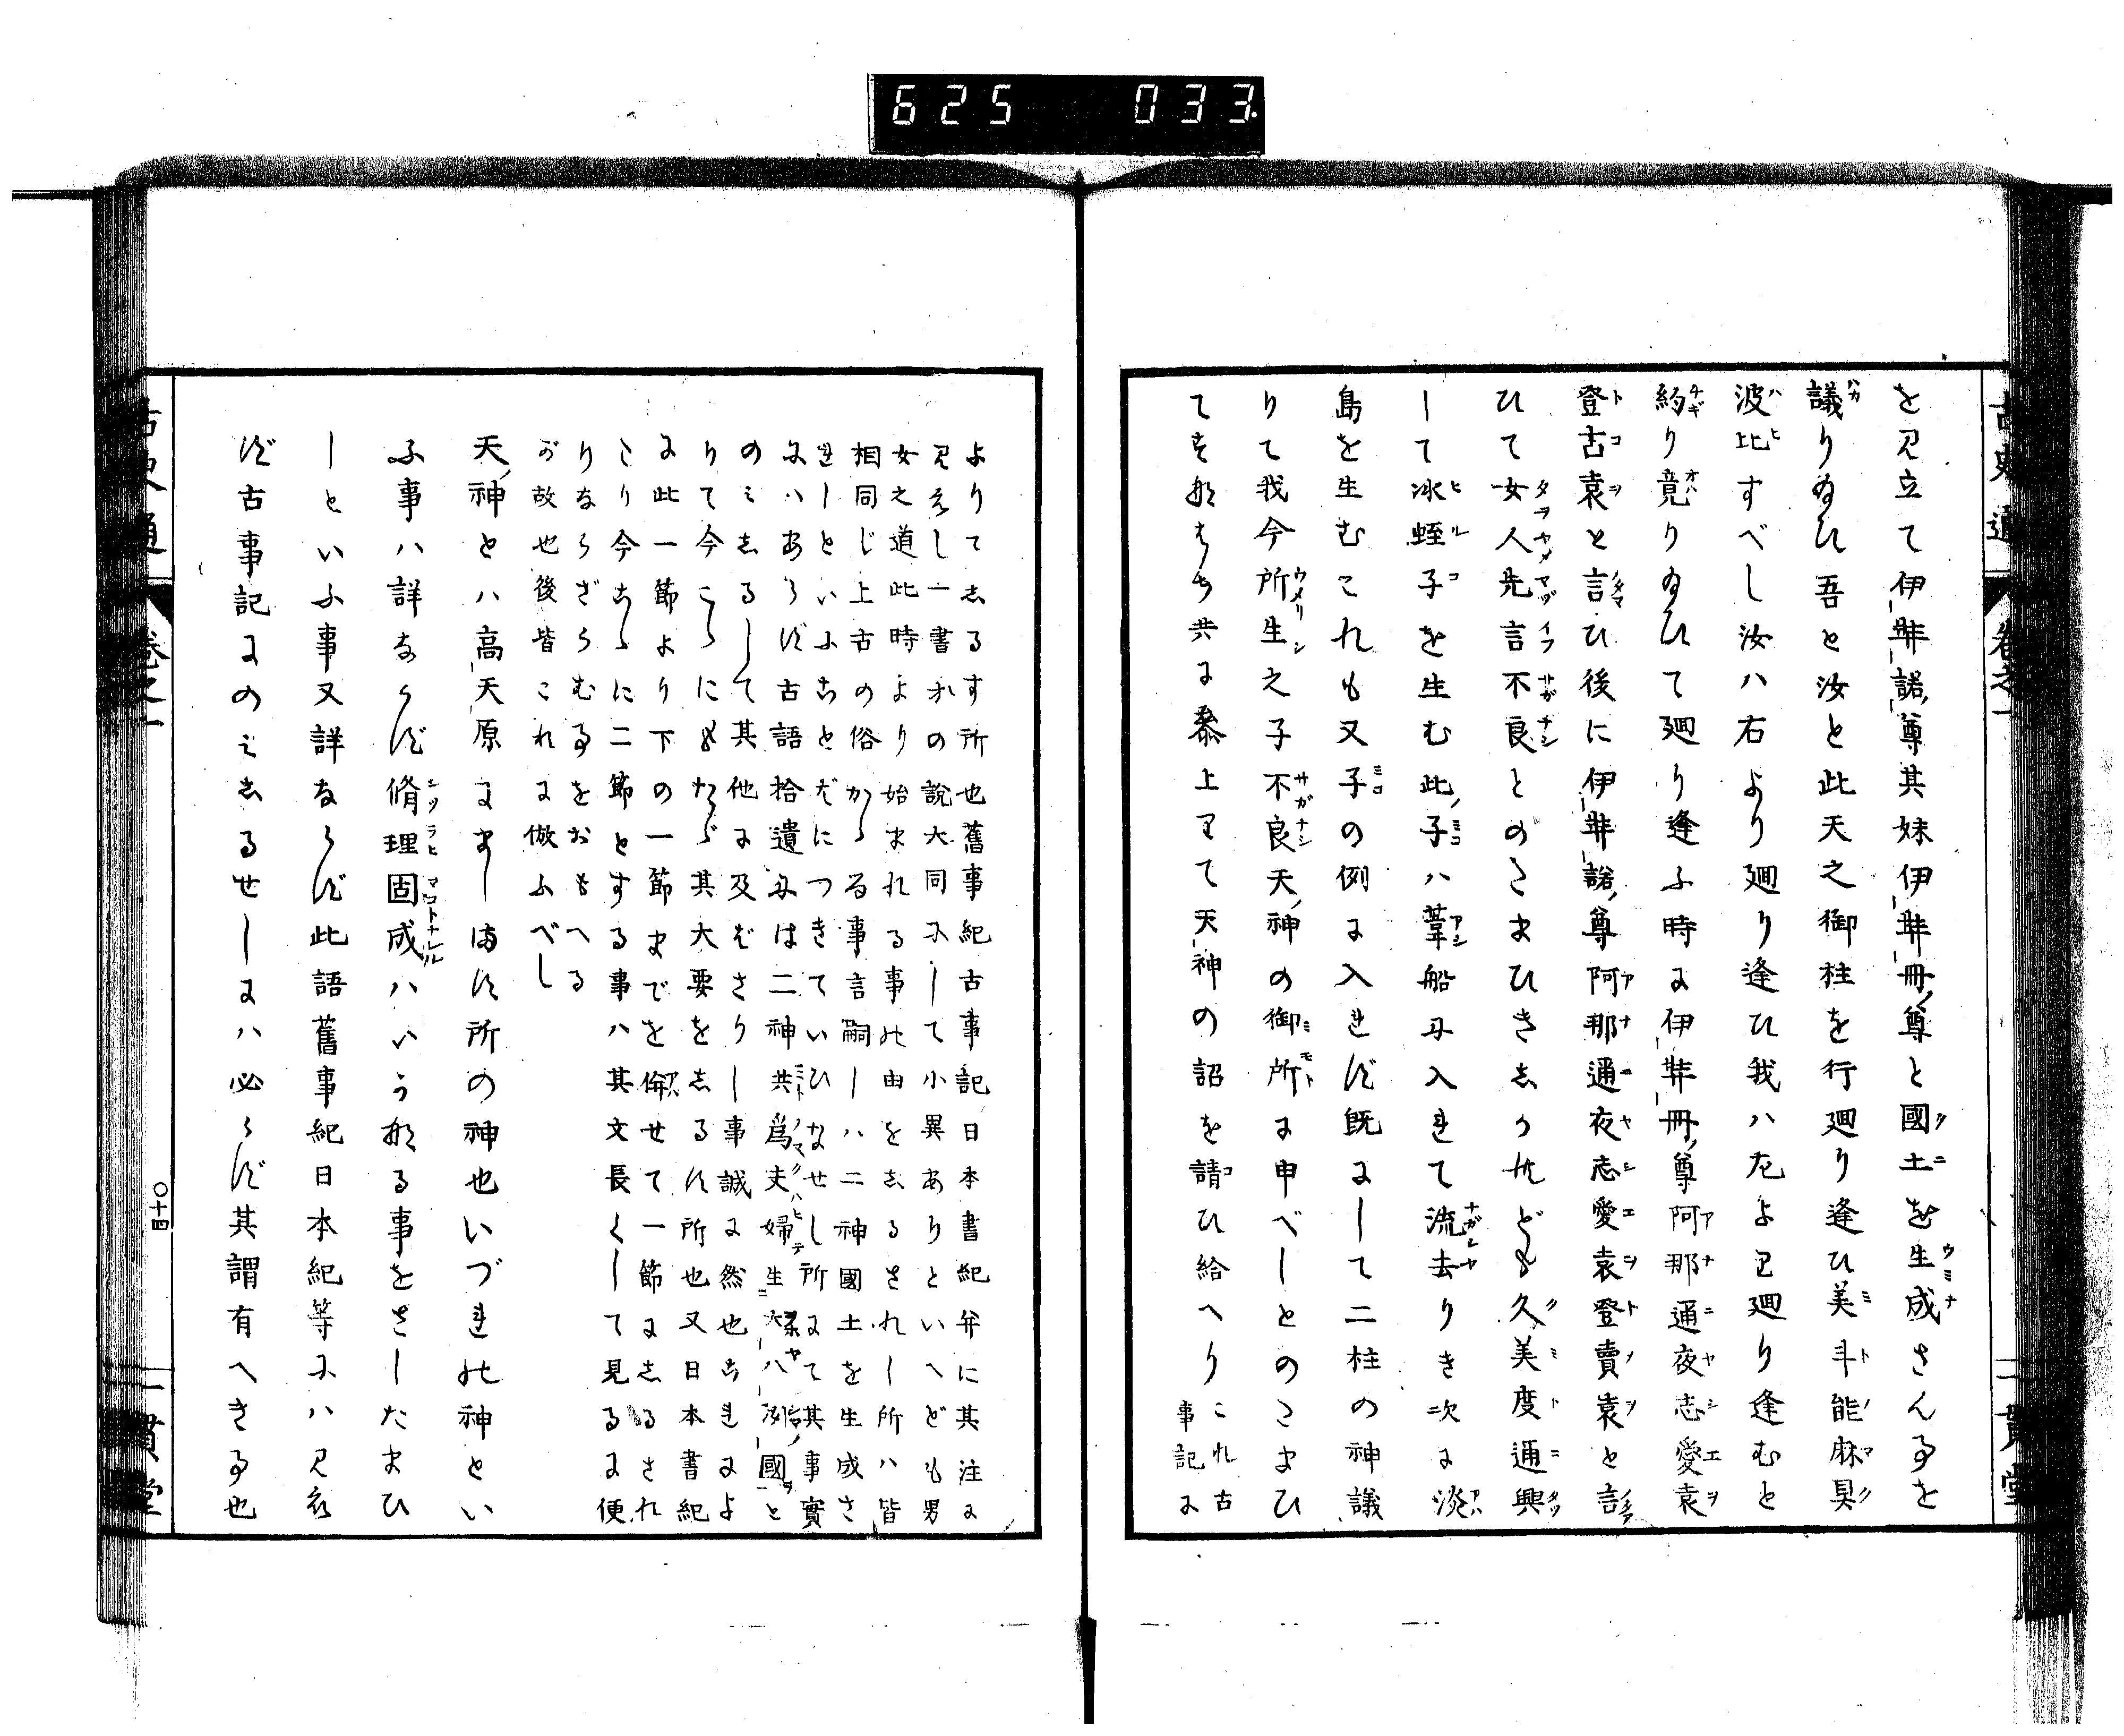 625 033
古史通 卷之一 一貫堂
を見立て伊弉諾尊其妹伊弉冊尊と國土を生成さん事を
議り給ひ吾と汝と此天之御柱を行廻り逢ひ美斗能麻具
波比すべし汝ハ右より廻り逢ひ我ハ左より廻り逢むと
約り竟り給ひて廻り逢ふ時に伊弉冊尊阿那邇夜志愛袁
登古袁と言ひ後に伊弉諾尊阿那邇夜志愛袁登賣袁と言
ひて女人先言不良とのたまひきしかれども久美度邇興
して氷蛭子を生む此子ハ葦船に入れて流去りき次に淡
島を生むこれも又子の例に入れず既にして二柱の神議
りて我今所生之子不良天神の御所に申べしとのたまひ
てすなはち共に參上りて天神の詔を請ひ給へりこれ古
事記に
よりてしるす所也舊事紀古事記日本書紀并に其注に
見えし一書等の說大同にして小異ありといへども男
女之道此時より始まれる事の由をしるされし所ハ皆
相同じ上古の俗かゝる事言嗣しハ二神國土を生成さ
れしといふことばにつきていひなせし所にて其事實
にハあらず古語拾遺には二神共爲夫婦生大八洲國と
のミしるして其他に及ばさりし事誠に然也これによ
りて今こゝにもたゞ其大要をしるす所也又日本書紀
に此一節より下の一節までを倂せて一節にしるされ
たり今こゝに二節とする事ハ其文長くして見るに便
りならざらむ事をおもへる
が故也後皆これに倣ふべし
天神とハ高天原にましませる所の神也いづれの神とい
ふ事ハ詳ならず脩理固成ハいかなる事をさしたまひ
しといふ事又詳ならず此語舊事紀日本紀等にハ見え
ず古事記にのミしるせしにハ必らず其謂有へき事也
古史通 卷之一 〇十四 一貫堂